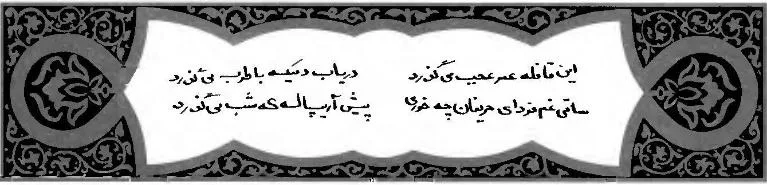 این قافله عمر عجب می‌گذرد دریاب دمیکه با طرب می‌گذرد
ساقی غم فردای حریفان چه خوری پیش آر پیاله که شب می‌گذرد